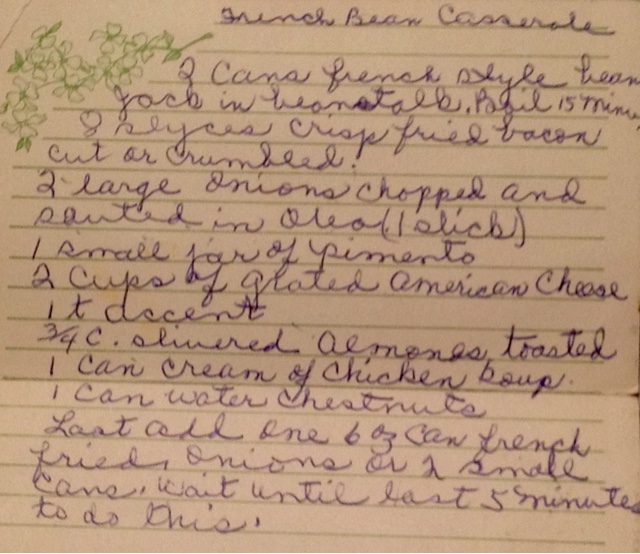 French Bean Casserole
2 Cans french style bean
Jack in beanstalk. Boil 15 minu
8 slyces crisp fried bacon
cut or crumbled.
2 large onions chopped and
sauted in Oleo (1 stick)
1 small jar of pimento
2 Cups of grated American Cheese
1 t accent
3/4 c. slivered almonds toasted
1 Can cream of chicken soup.
1 Can water chestnuts
Last add one 6 oz can french
fried onions or 2 small
cans. wait until last 5 minutes
to do this.